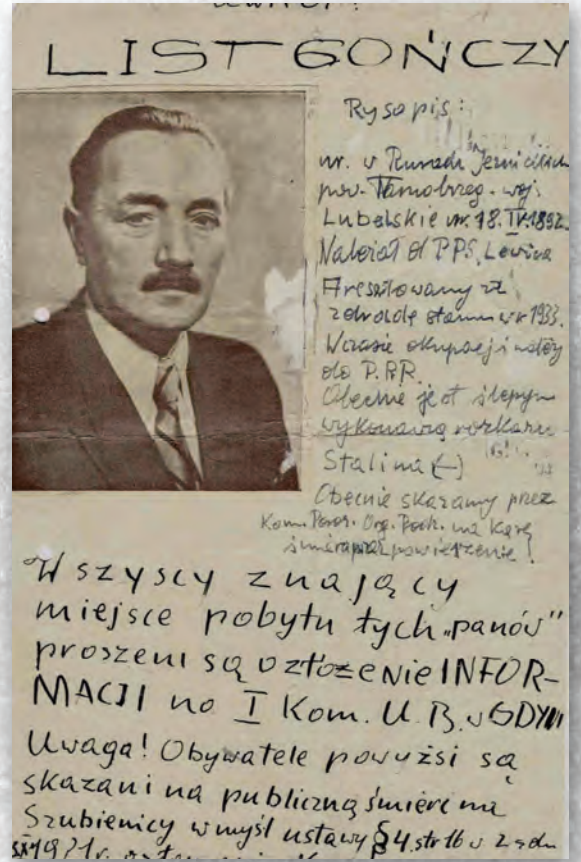 LIST GOŃCZY
Rysopis:
ur. w Rurach Jezuickich
pow. Tarnobrzeg. woj.
Lubelskie ur. 18.IV.1892.
Należał d PPS, Lewica
Aresztowany za
zdradę stanu w r 1933.
W czasie okupacji należy
do P.P.R.
Obecnie jest ślepym
wykonawcą rozkazu
Stalina (-)
Obecnie skazany przez
Kom. Org. na karę
śmierci przez powieszenie!
Wszyscy znający
miejsce pobytu tych "panów"
proszeni są o złożenie INFOR-
MACJI na I Kom. U.B. w GDYNI
Uwaga! Obywatele powyżsi są
skazani na publiczną śmierć na
Szubienicy w myśl ustawy §4. str 16